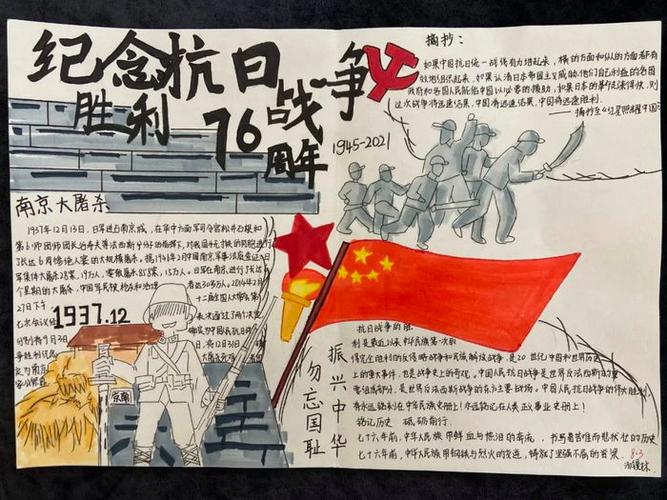 纪念抗日战争
胜利76周年
1945-2021
摘抄：
如果中国抗日统一战线有力组起来，横的方面和纵的方面都有
效地组织起来，如果认清日本帝国主义威胁他们自己利益的各国
政府和各国人民能给中国以必要的援助，如果日本的革命起来得快，则
这次战争将迅速结束，中国将迅速胜利。
——摘抄至《红星照耀中国》
南京大屠杀
1937年12月13日，日军进占南京城，在华中方面军司令官松井石根和
第6师团师团长谷寿夫等法西斯分子的指挥下，对我国手无寸铁的同胞进行
了长达6周惨绝人寰的大规模屠杀。
军集体大屠杀28案，19万人，零散屠杀858案，15万人。日军在南京进行了长达
个星期的大屠杀，中国军民被枪杀和活埋
者达30多万人。2014年2月
27日下午
十二届全国人大常委
七次会议
表次通过了两个决定
1937.12
分别将9月3日
争胜利纪
南京
振兴中华
勿忘国耻
抗日战争的胜
利是最近以来中华民族第一次取
得完全胜利的反侵略战争和民族解放战争，是20世纪中国和世界历史
上的重大事件，也是战争史上的奇观。中国人民抗日战争是世界反法西斯战争的重
要组成部分，是世界反法西斯战争的东方主要战场。中国人民抗日战争的伟大胜利，
将永远铭刻在中华民族史册上！永远铭记在人类正义事业史册上！
铭记历史 砥砺前行
七十六年前，中华人民族用鲜血与热泪的奔流，书写着苦难而悲壮的历史
七十六年前，中华人民族用钢铁与烈火的交迸，铸就了坚强不屈的脊梁
8.3